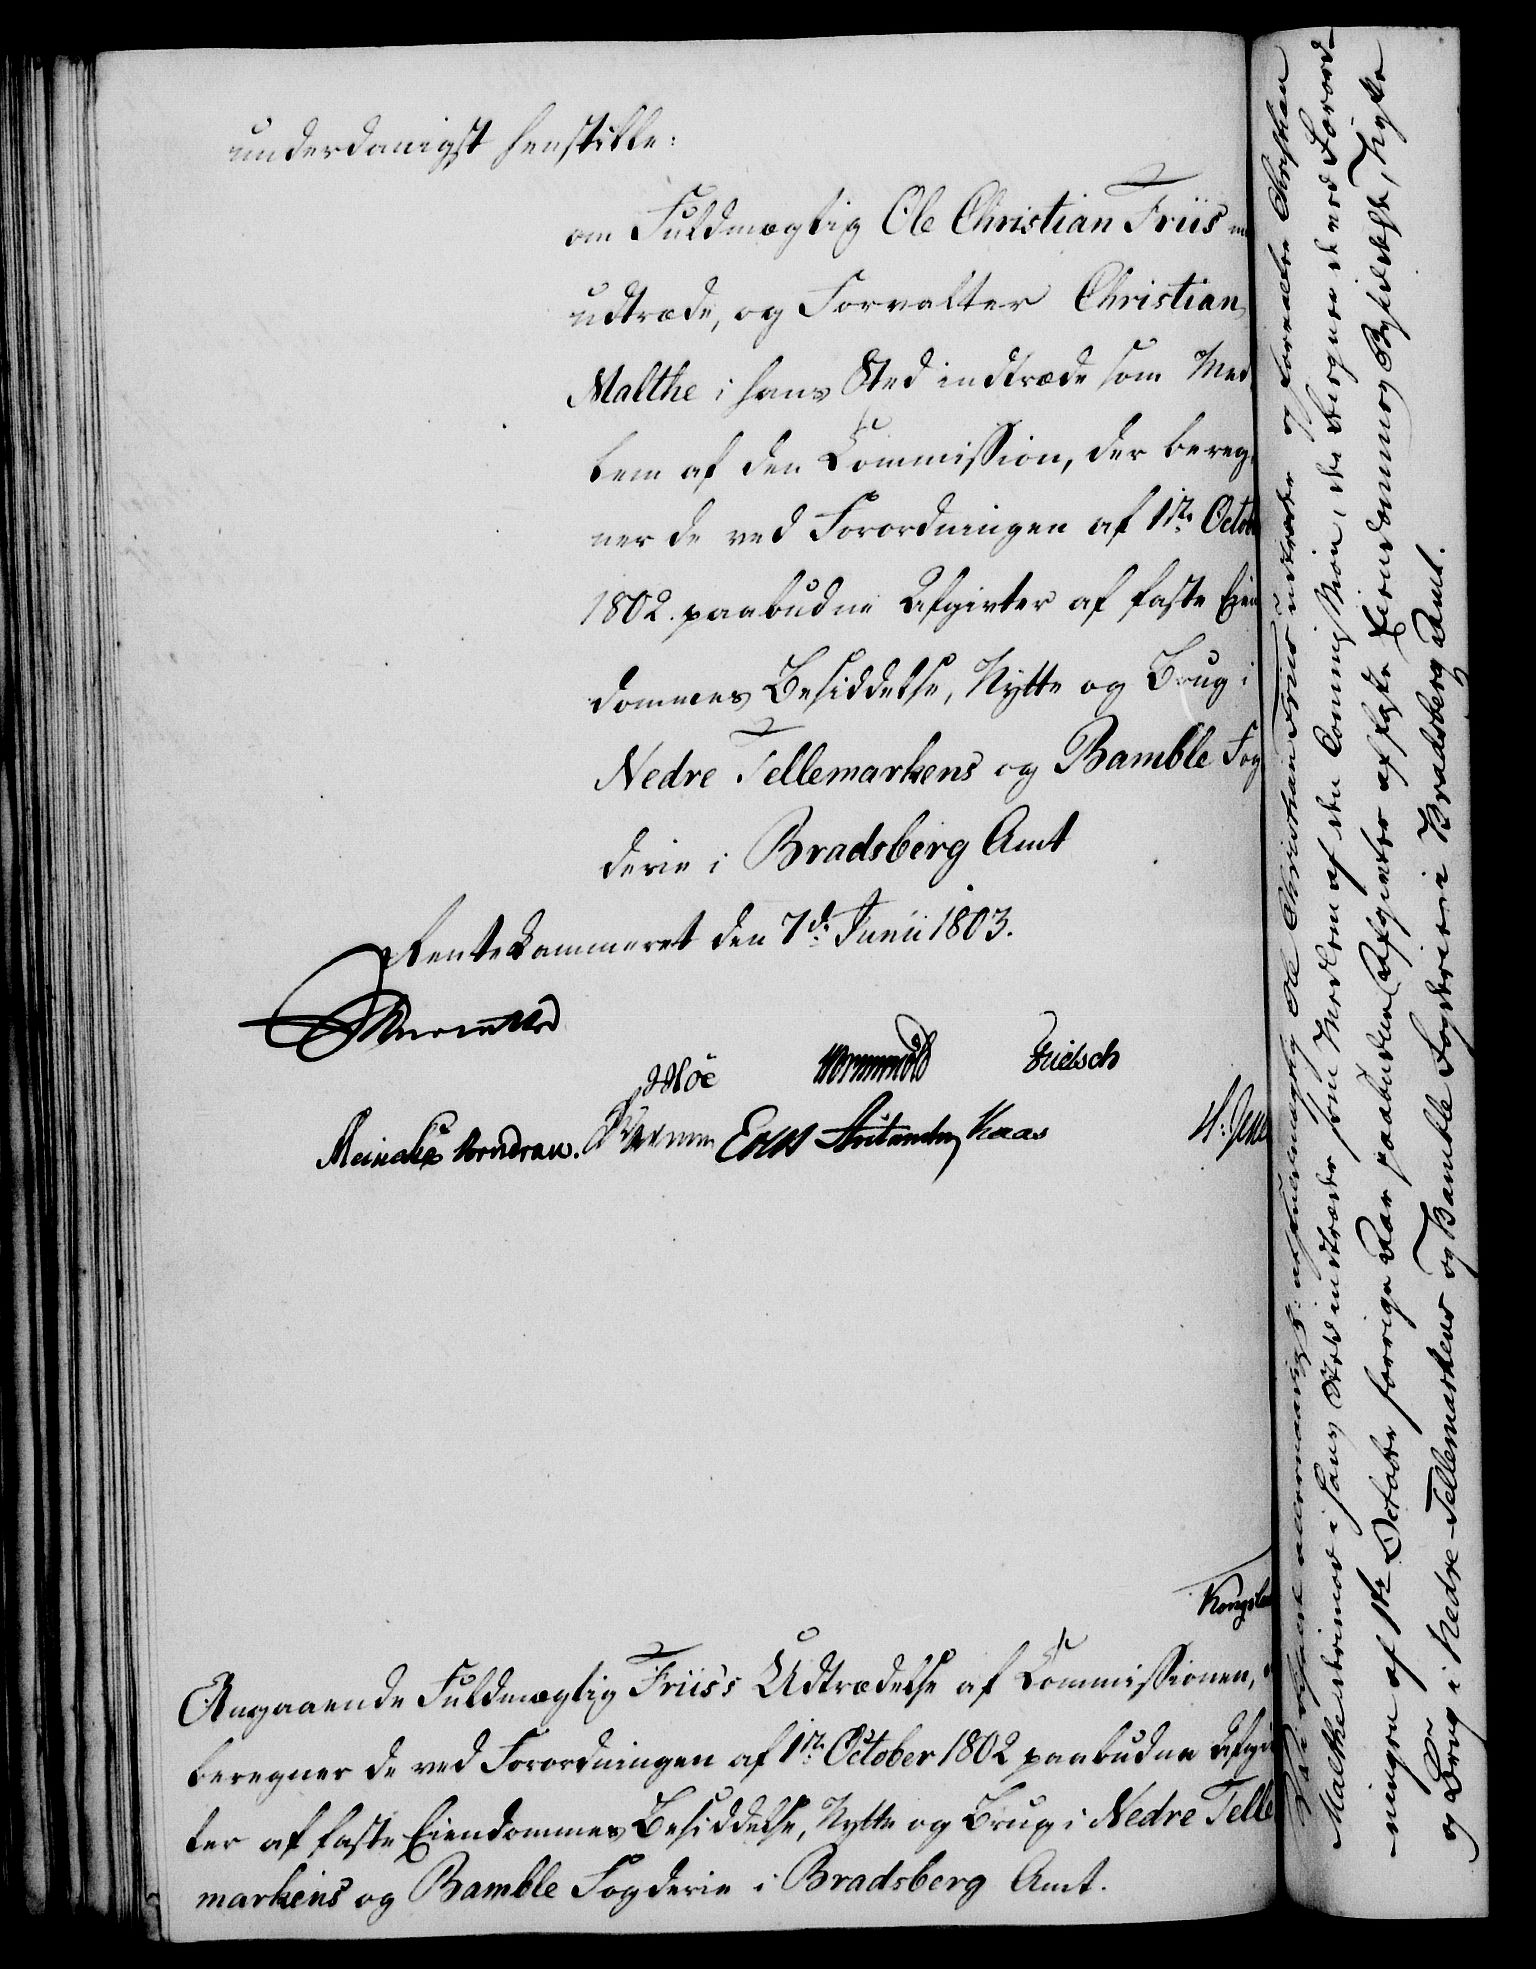 underdanigst henstille:
om Fuldmægtig Ole Christian Friis
udtræde, og Forvalter Christian
Malthe i hans Sted indtræde som Med
lem af den Commission, der bereg-
ner de ved Forordningen af 1ste Octob
1802. paabudne Afgivter af faste Eien
dommes Besiddelse, Nytte og Brug i
Nedre Tellemarkens og Bamble Fog
derie i Bradsberg Amt
Rentekammeret den 7de Junii 1803.
Wormskiold
Meinche Kaas
H: Jene
Kongsl
Angaaende Fuldmægtig Friis's Udtrædelse af Commissionen,
beregner de ved Forordningen af 1ste October 1802 paabudne Afgiv
ter af faste Eiendommes Besiddelse, Nytte og Brug i Nedre Telle
markens og Bamble Fogderie i Bradsberg Amt.
allernaadigst: at Fuldmægtig Ole Christian Friis udtræder og Forvalter Christian
Malthe derimod i hans Sted indtræder som Medlem af den Commission, der beregner de ved Forord-
ningen af 1ste October forrige Aar paabudne Afgivter af faste Eiendommes Besiddelse, Nytte
og Brug i Nedre-Tellemarkens og Bamble Fogderie i Bradsberg Amt.